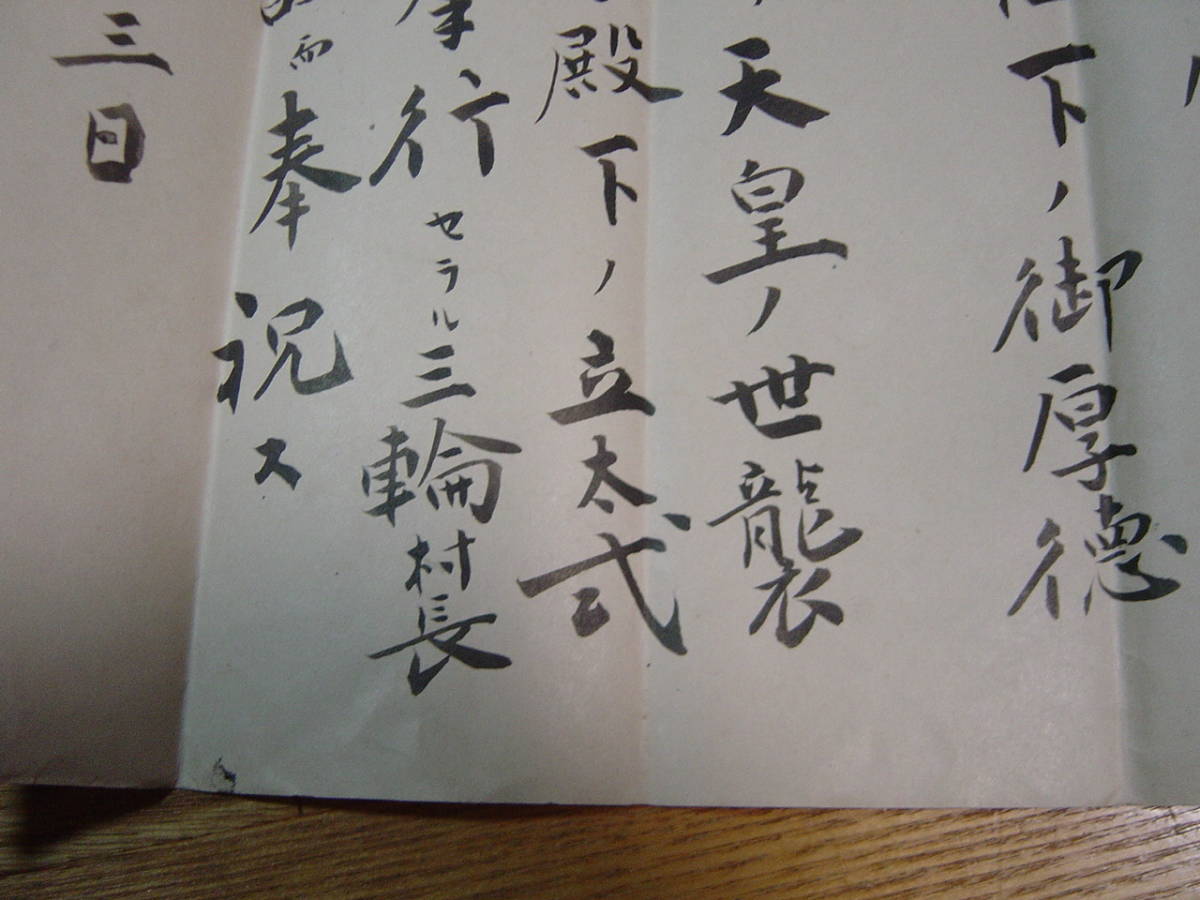 下ノ御厚徳
天皇ノ世襲
殿下ノ立太式
行セラル三輪村長
而奉祝ス
三日